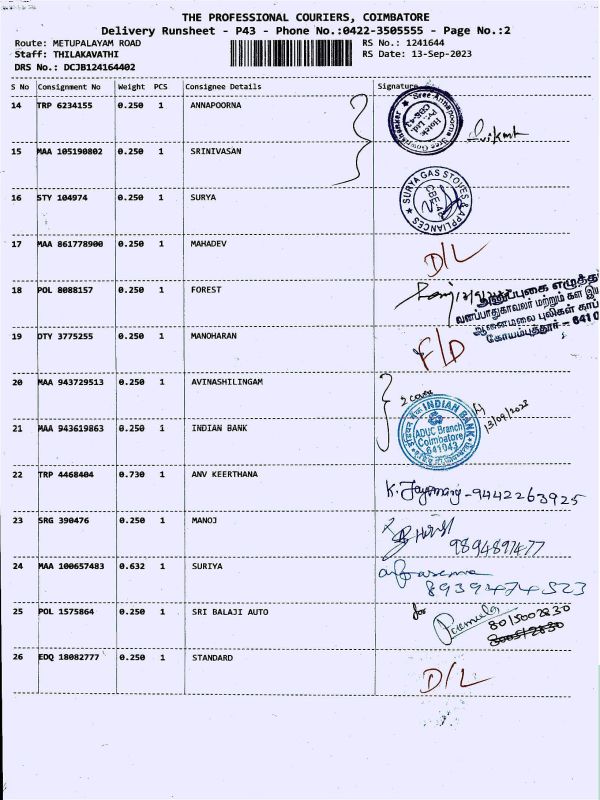 THE PROFESSIONAL COURIERS, COIMBATORE
Delivery Runsheet - P43 - Phone No.:0422-3505555 - Page No.:2
Route: METUPALAYAM ROAD RS No.: 1241644
Staff: THILAKAVATHI RS Date: 13-Sep-2023
DRS No.: DCJB124164402
S No Consignment No Weight PCS Consignee Details Signature
14 TRP 6234155 0.250 1 ANNAPOORNA
Sree Annapoorna Sree Gowrishankar Hotels Pvt. Ltd. CBE-43
15 MAA 105190802 0.250 1 SRINIVASAN
16 STY 104974 0.250 1 SURYA
SURYA GAS STOVES & APPLIANCES CBE-43
17 MAA 861778900 0.250 1 MAHADEV
D/L
18 POL 8088157 0.250 1 FOREST
வனப்பாதுகாவலர் மற்றும் கள
ஆனைமலை புலிகள் காப்
கோயம்புத்தூர் - 6410
19 DTY 3775255 0.250 1 MANOHARAN
F/D
20 MAA 943729513 0.250 1 AVINASHILINGAM
2 cover
21 MAA 943619863 0.250 1 INDIAN BANK
INDIAN BANK
ADUC Branch
Coimbatore
641043
13/09/2023
22 TRP 4468404 0.730 1 ANV KEERTHANA
9442263925
23 SRG 390476 0.250 1 MANOJ
9894897477
24 MAA 100657483 0.632 1 SURIYA
8939474523
25 POL 1575864 0.250 1 SRI BALAJI AUTO
for
8015002830
26 EDQ 18082777 0.250 1 STANDARD
D/L